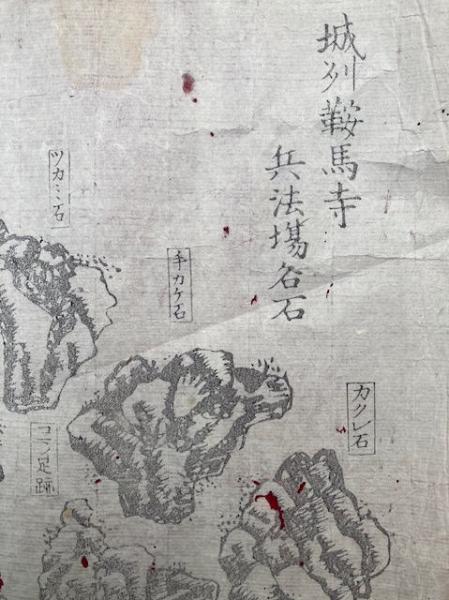 城刕鞍馬寺
兵法場名石
カクレ石
手カケ石
ツカミ石
コマ足跡